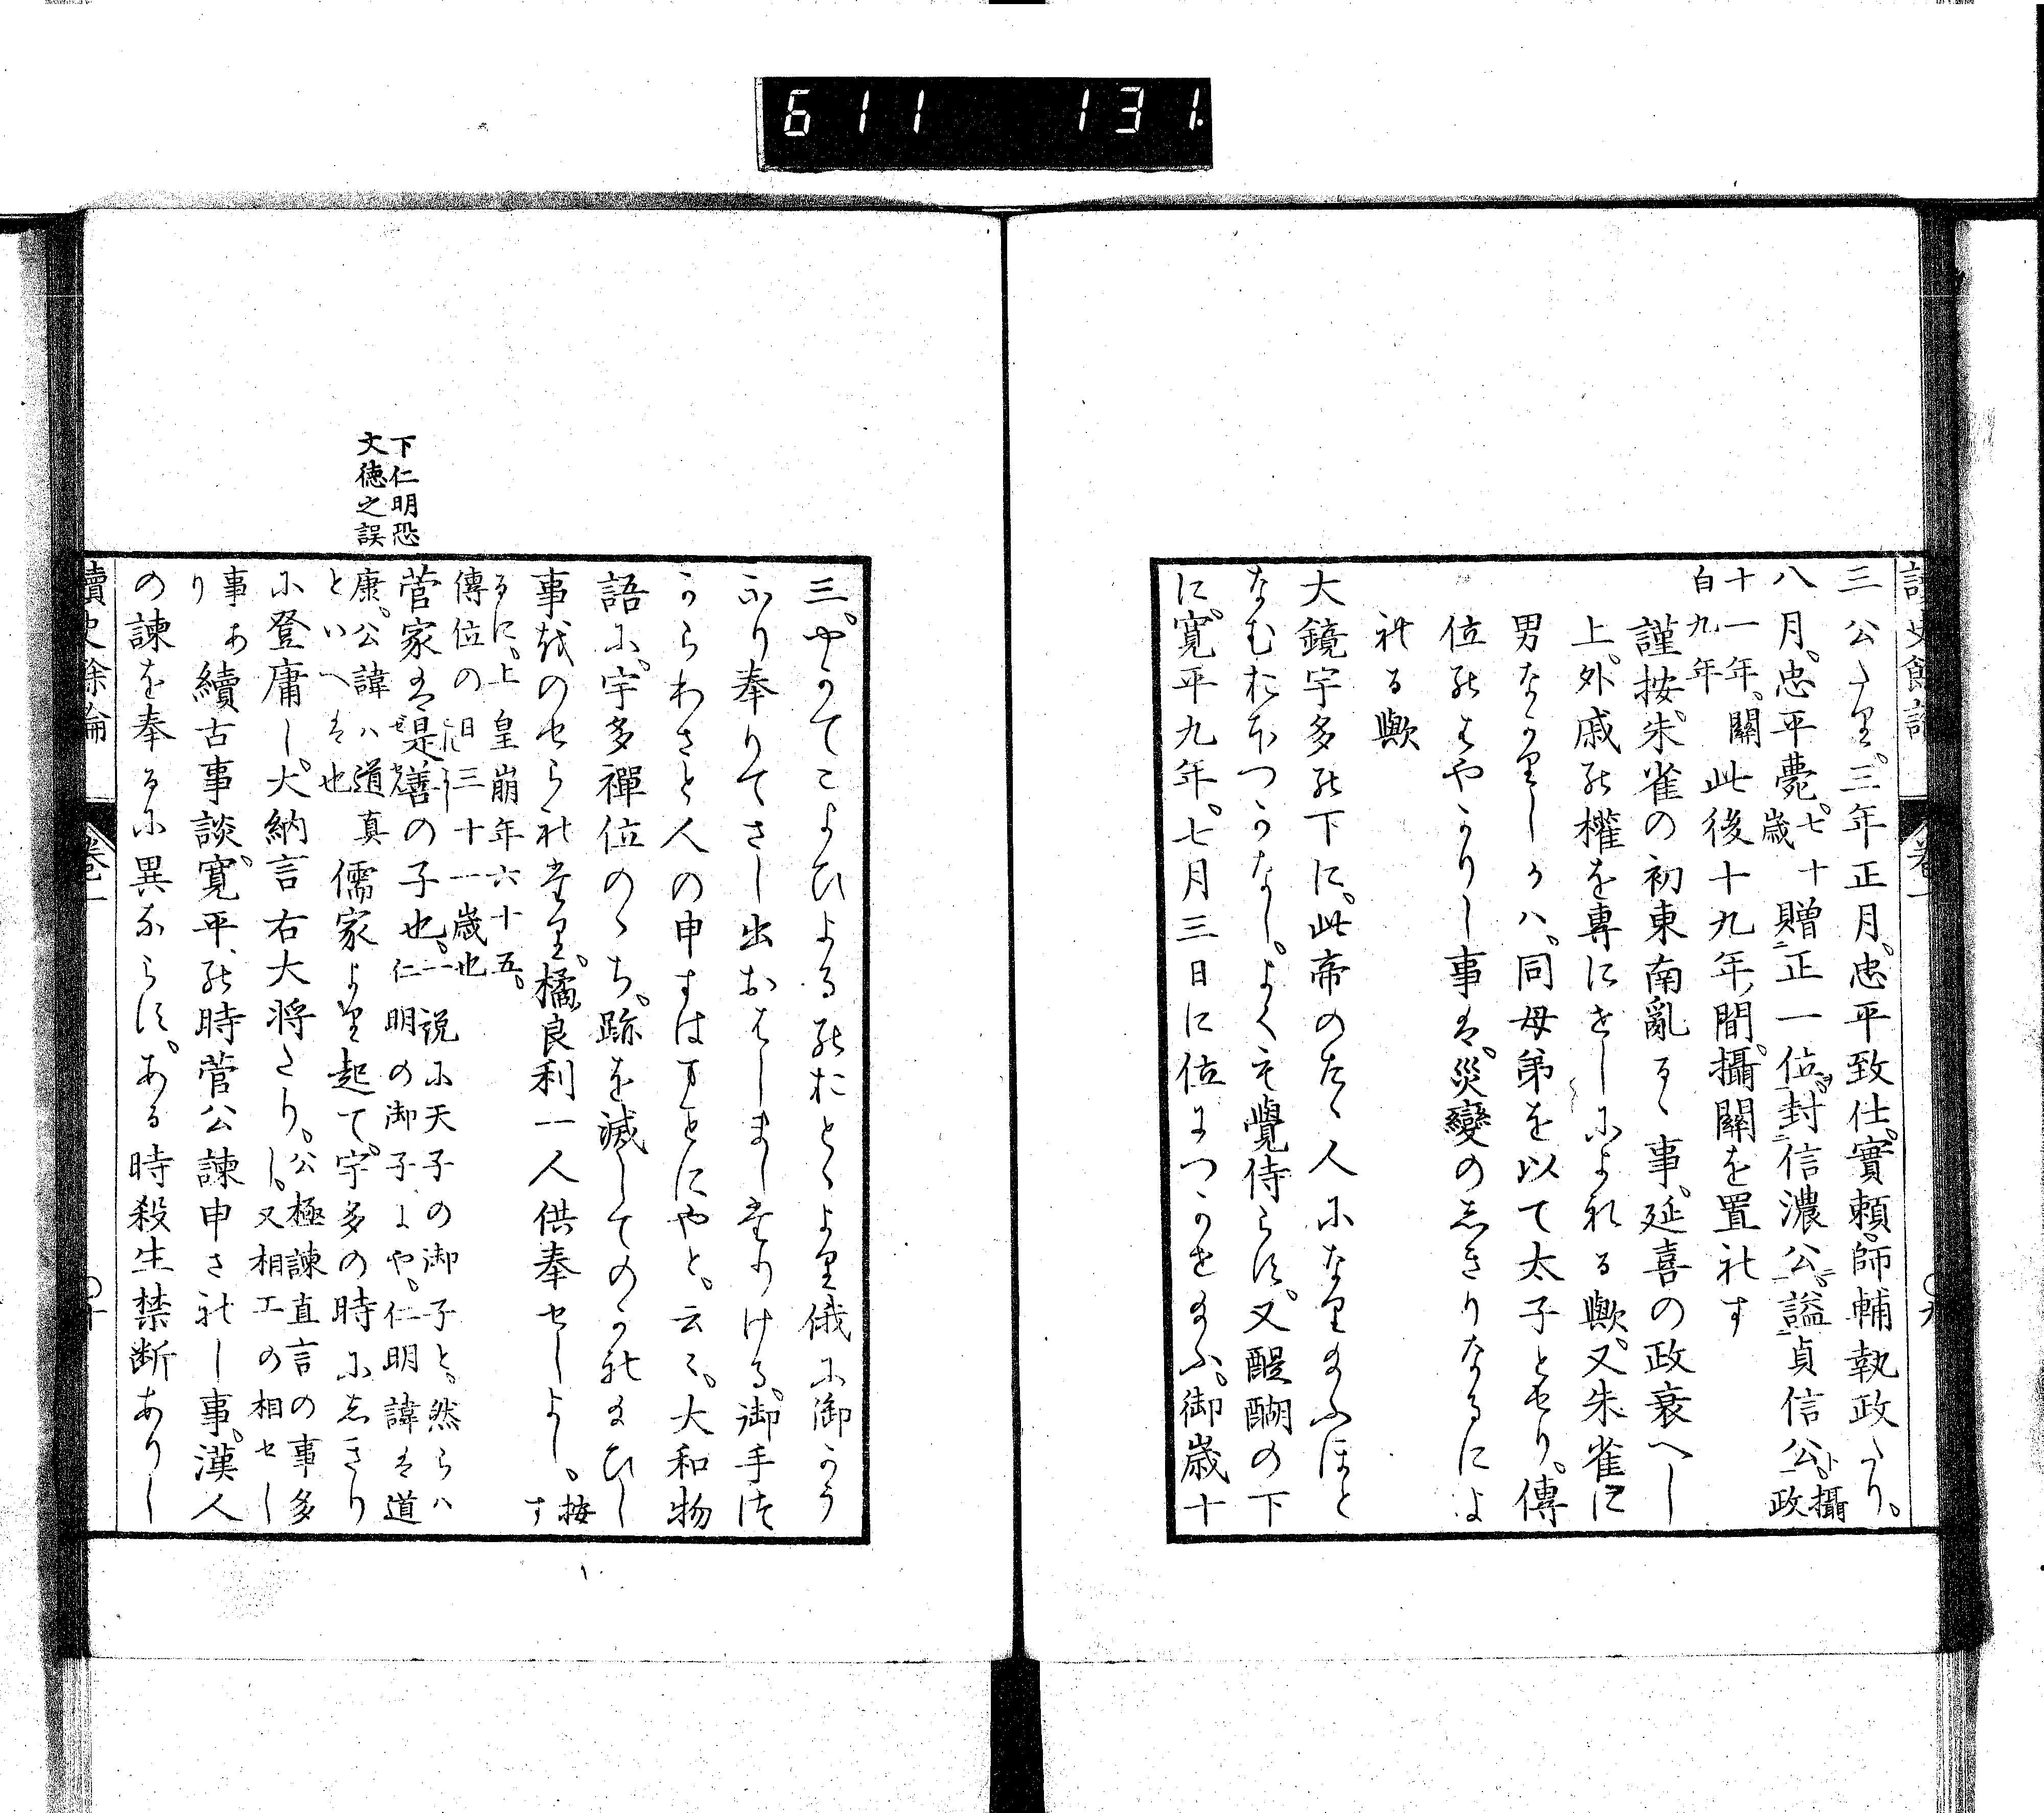 611 131
讀史餘論 卷一 ○九
三公たり。三年正月。忠平致仕。實頼。師輔執政たり。
八月。忠平薨。七十歳 贈正一位。封信濃公。諡貞信公。攝政
十一年。關白九年 此後十九年ノ間。攝關を置れす
謹按。朱雀の初東南亂るゝ事。延喜の政衰へし
上。外戚の權を專にせしによれる歟。又朱雀に
男なかりしかハ。同母弟を以て太子とせり。傳
位のはやかりし事は。災變のしきりなるによ
れる歟
大鏡宇多の下に。此帝のたゝ人になり給ふほと
なむおほつかなし。よくも覺侍らす。又醍醐の下
に。寛平九年。七月三日に位につかせ給ふ。御歳十
三。やかてこよひよるのおとゝより俄に御かう
ふり奉りてさし出おはしましたりける。御手つ
からわさと人の申すはまことにやと。云々。大和物
語に。宇多禪位のゝち。跡を滅してのかれ給ひし
事をのせられたり。橘良利一人供奉せしよし。按す
るに。上皇崩年六十五。
傳位の日三十一歳也
菅家は是善の子也。一説に天子の御子と。然らハ
仁明の御子にや。仁明諱は道
康。公諱ハ道真
といへは也 儒家より起て。宇多の時にしきり
に登庸し。大納言右大將たり。公極諫直言の事多
し。又相工の相せし
事あ
り 續古事談。寛平ノ時菅公諫申されし事。漢人
の諫を奉るに異ならす。ある時殺生禁断ありし
下仁明恐
文德之誤
讀史餘論 卷一 ○十